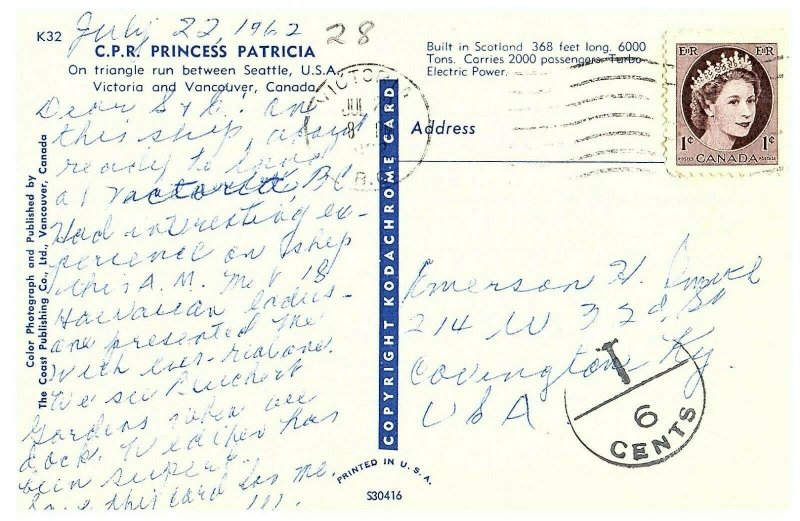 July 22, 1962
28
K32
C.P.R. PRINCESS PATRICIA
On triangle run between Seattle, U.S.A.,
Victoria and Vancouver, Canada.
Built in Scotland 368 feet long. 6000
Tons. Carries 2000 passengers. Turbo-
Electric Power.
Dear S & K: on
this ship, about
ready to land
at Victoria, BC
Had interesting ex-
perience on ship
this A.M. Met 18
Hawaiian ladies -
one presented me
with
We see Butchart
Gardens when we
dock. Weather has
been superb.
this card for me.
Color Photograph and Published by
The Coast Publishing Co., Ltd., Vancouver, Canada
COPYRIGHT KODACHROME CARD
VICTORIA
JUL
B.C.
Address
EIIR EIIR
1¢ 1¢
POSTES CANADA POSTAGE
Emerson H.
214 W 33d St
Covington Ky.
USA
T
6
CENTS
PRINTED IN U.S.A.
S30416